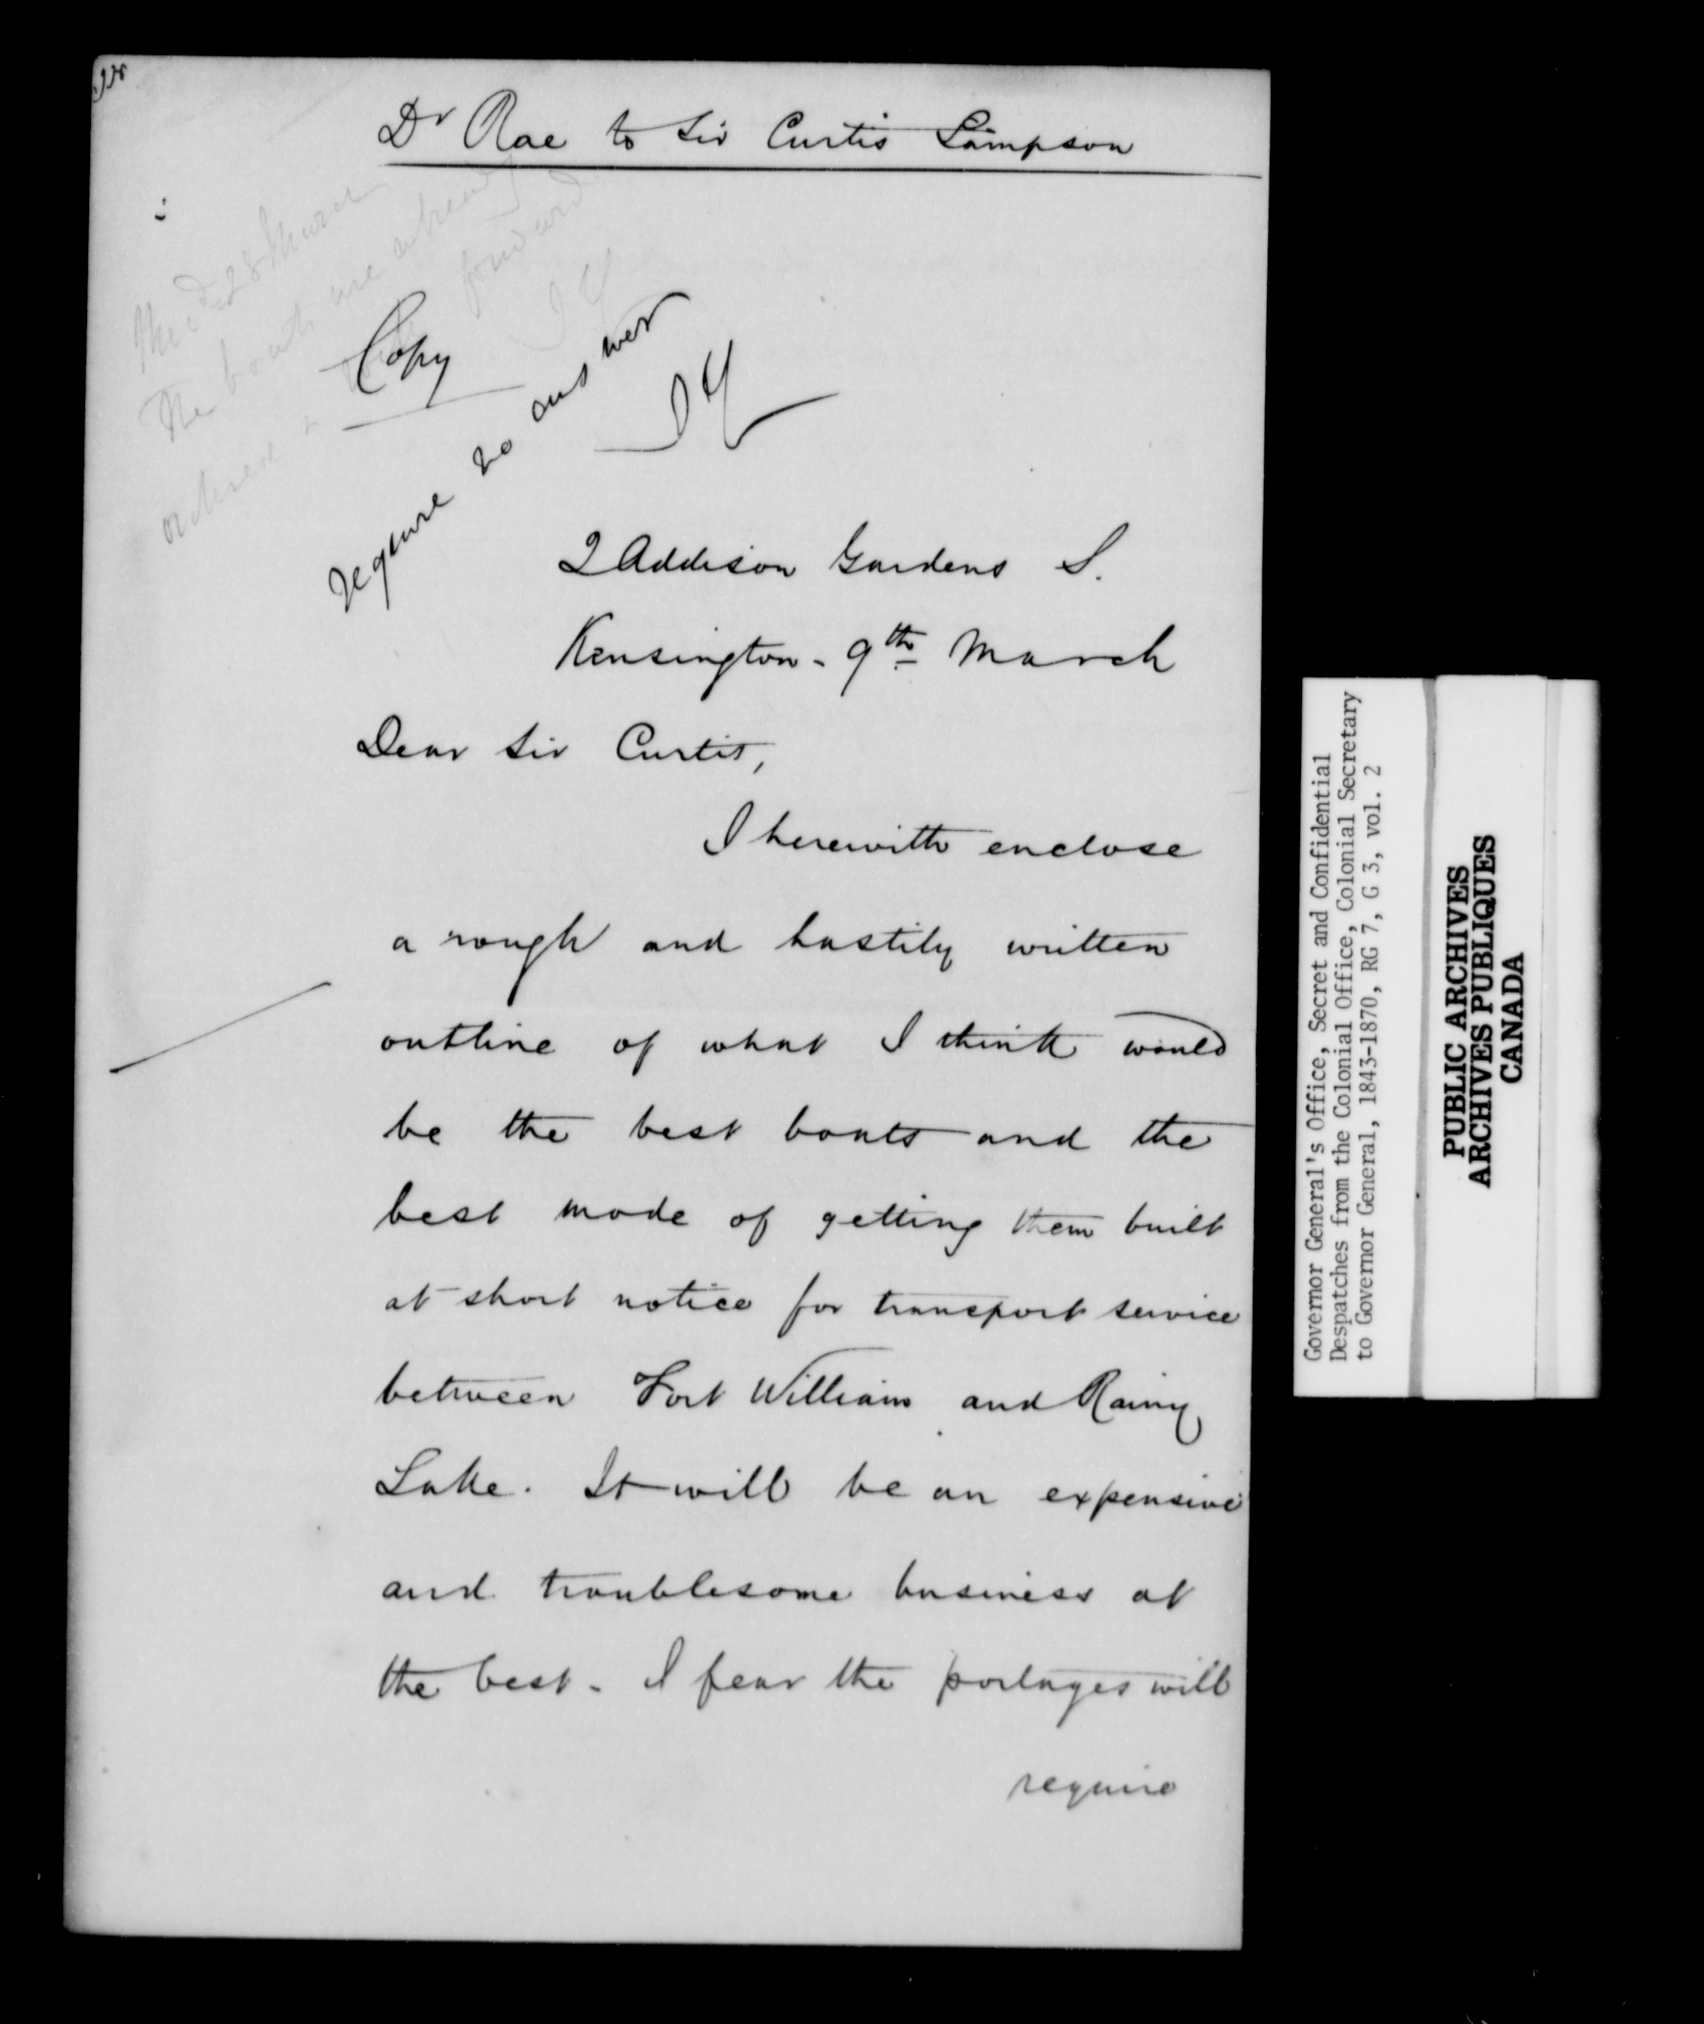 Dr Rae to Sir Curtis Lampson
The
The boats are already
forward
Copy
require no answer
JY
2 Addison Gardens S.
Kensington - 9th March
Dear Sir Curtis,
I herewith enclose
a rough and hastily written
outline of what I think would
be the best boats and the
best mode of getting them built
at short notice for transport service
between Fort William and Rainy
Lake. It will be an expensive
and troublesome business at
the best - I fear the portages will
require
Governor General's Office, Secret and Confidential
Despatches from the Colonial Office, Colonial Secretary
to Governor General, 1843-1870, RG 7, G 3, vol. 2
PUBLIC ARCHIVES
ARCHIVES PUBLIQUES
CANADA